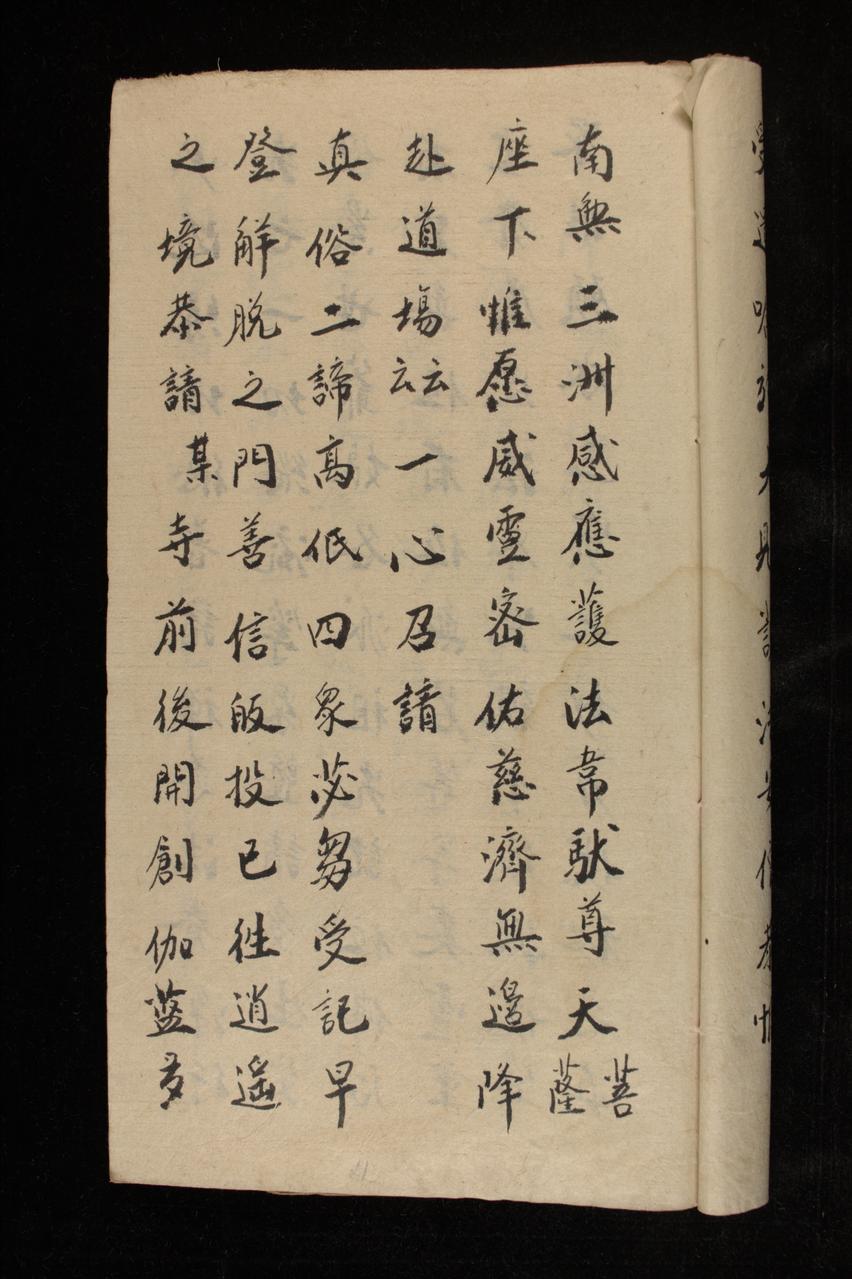 南無三洲感應護法韋馱尊天菩薩
座下惟愿威靈密佑慈濟無邊降
赴道場云云一心召請
真俗二諦高低四衆苾芻受記早
登解脫之門善信皈投已徃逍遥
之境恭請某寺前後開創伽藍